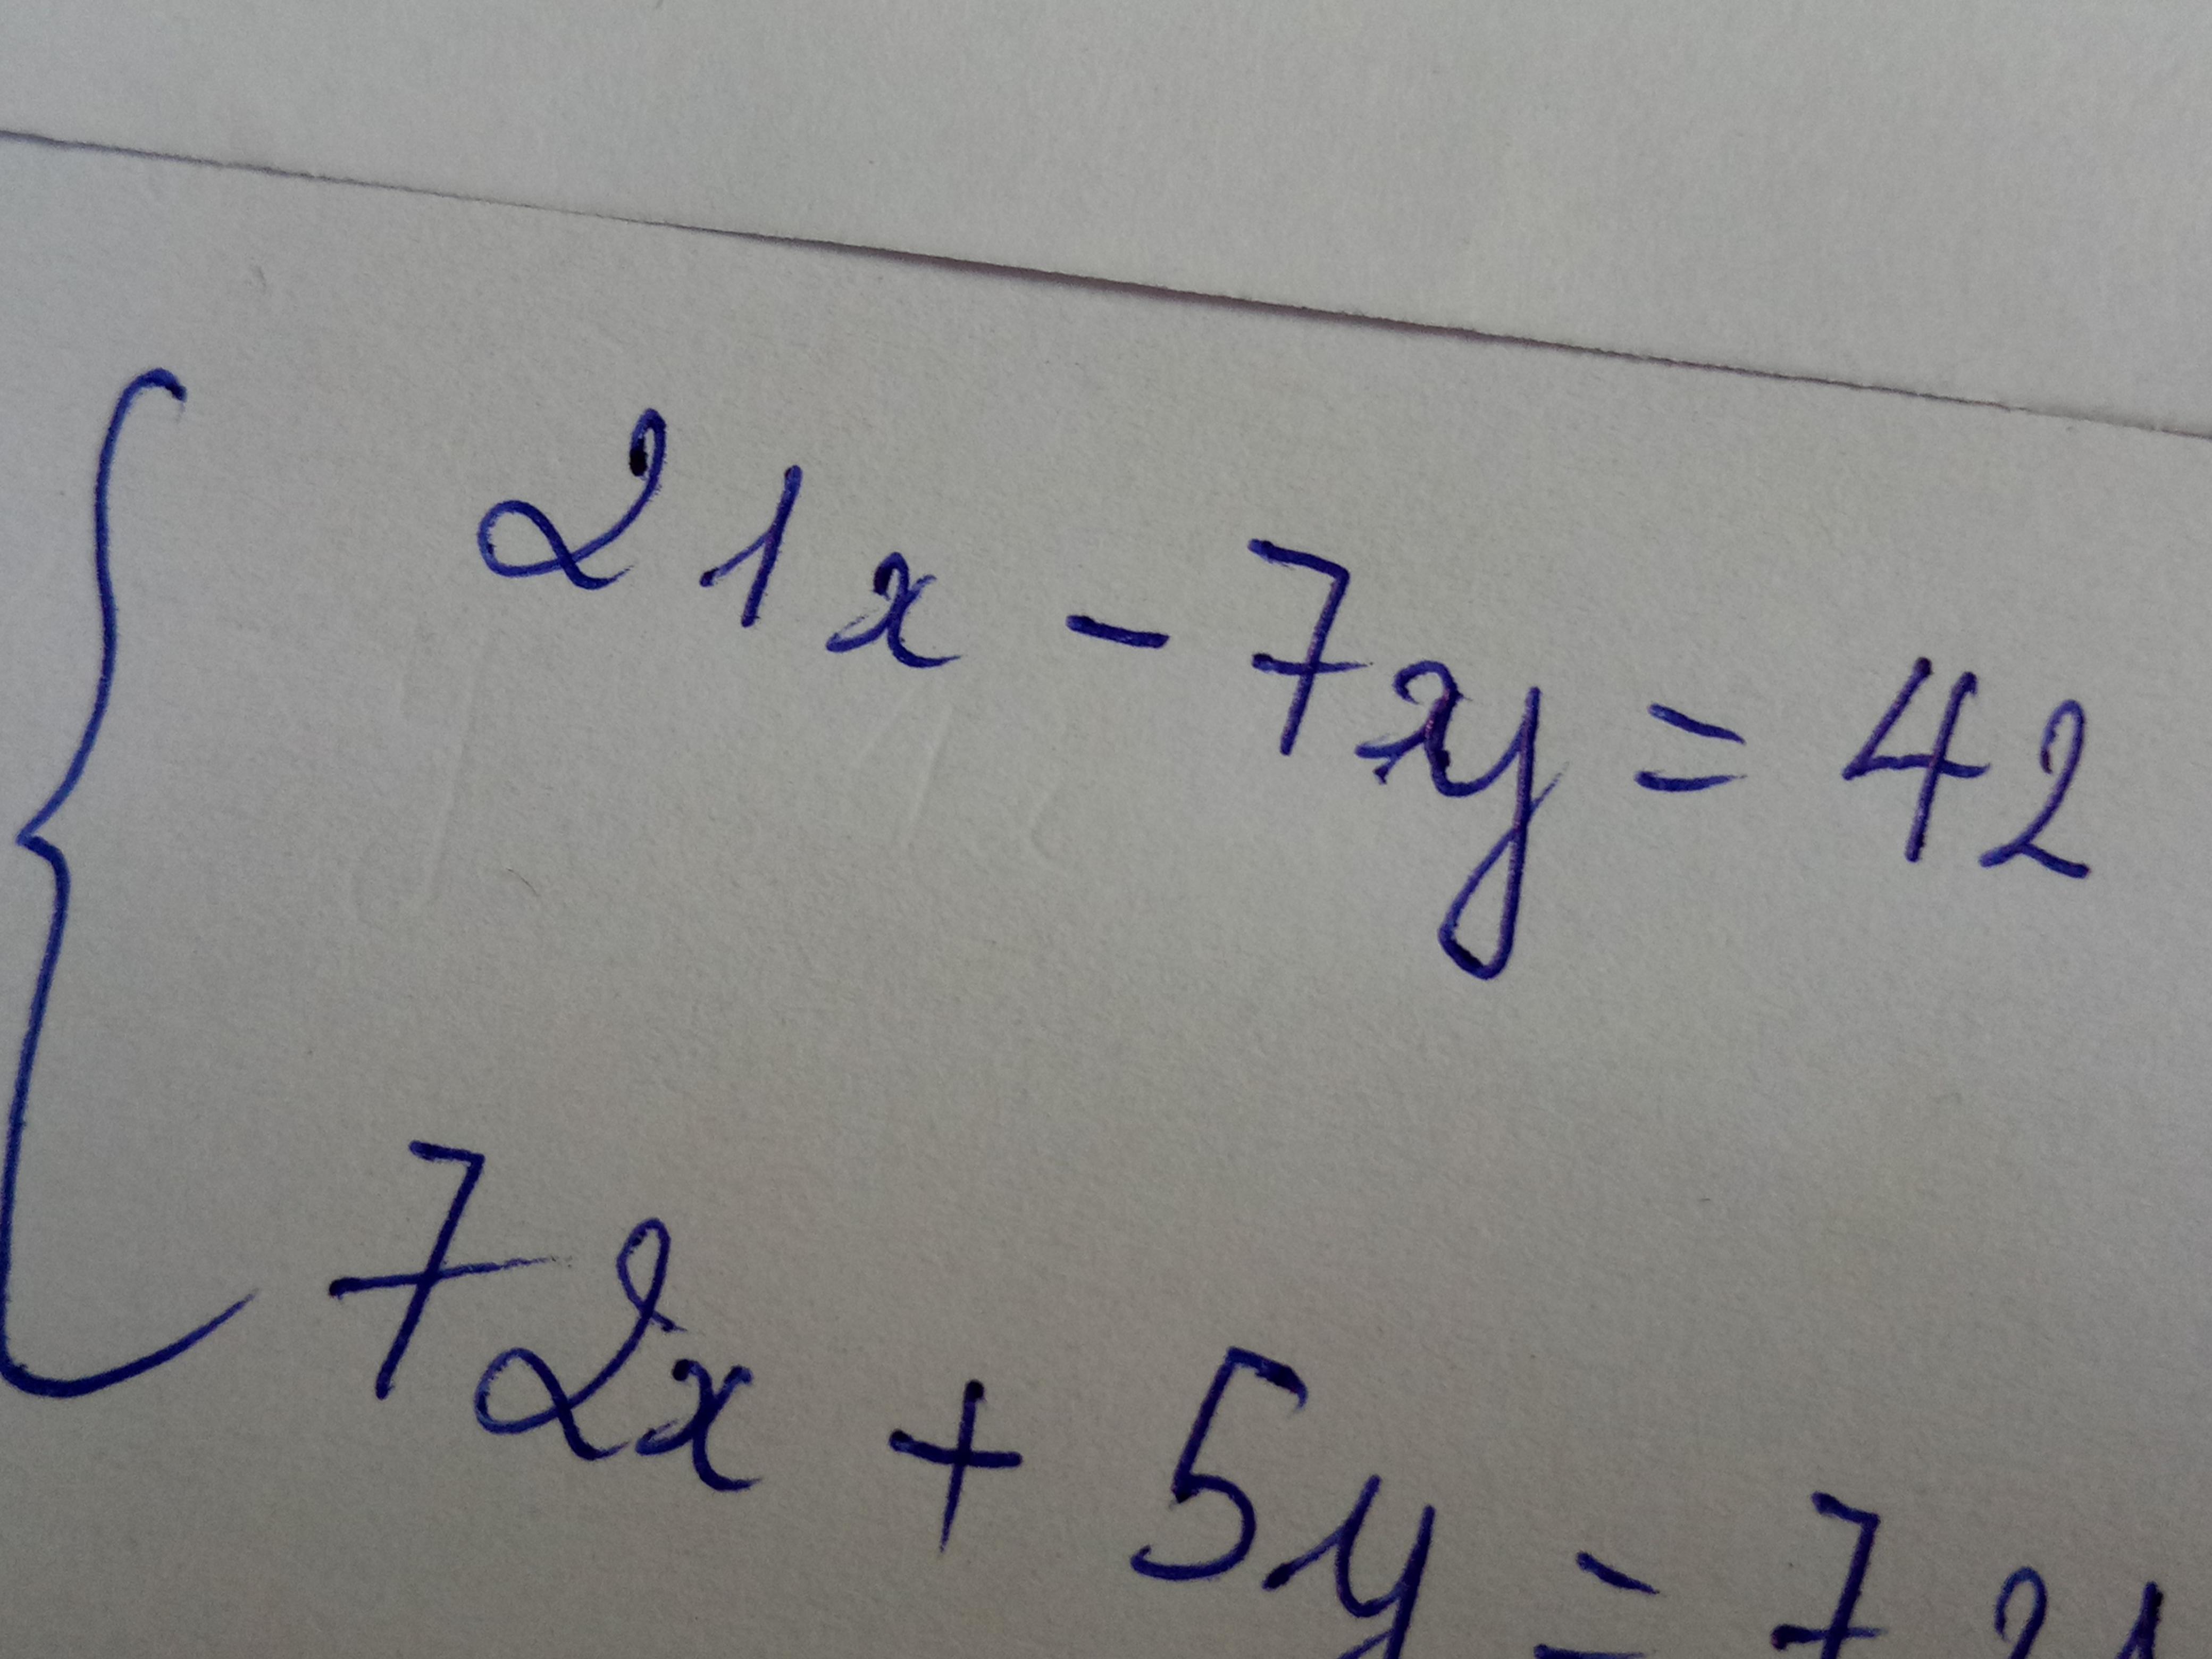 21x - 7y = 42
72x + 5y = 7